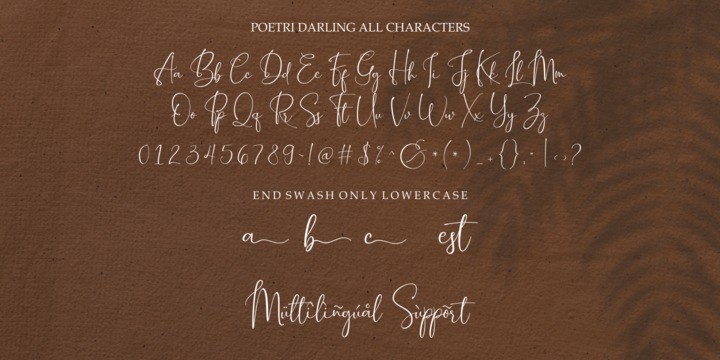 POETRI DARLING ALL CHARACTERS
Aa Bb Cc Dd Ee Ff Gg Hh Ii Jj Kk Ll Mm
Oo Pp Qq Rr Ss Tt Uu Vv Ww Xx Yy Zz
0123456789~!@#$%^&*(*)_+{}:"|<>?
END SWASH ONLY LOWERCASE
a b c est
Mültîlìñgúål Sùppõrt